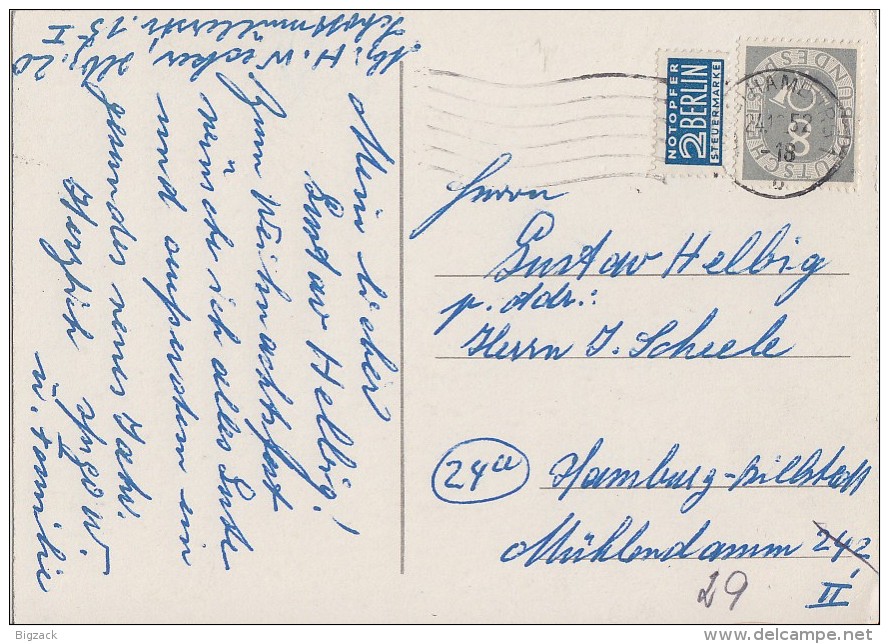 Abs.: H. W
Schottmüllerstr. 15 I
Hbg. 20
Mein lieber
Gustav Helbig!
Zum Weihnachtsfest
wünsche ich alles Gute
und außerdem ein
gesundes neues Jahr.
Herzlich
u. Familie
NOTOPFER
2 BERLIN
STEUERMARKE
DEUTSCHE BUNDESPOST
HAMBURG
52
18
Herrn
Gustav Helbig
p. Adr.:
Herrn J. Scheele
24a Hamburg-Billstedt
Mühlendamm 242
29 II
Bigzack
www.delcampe.net